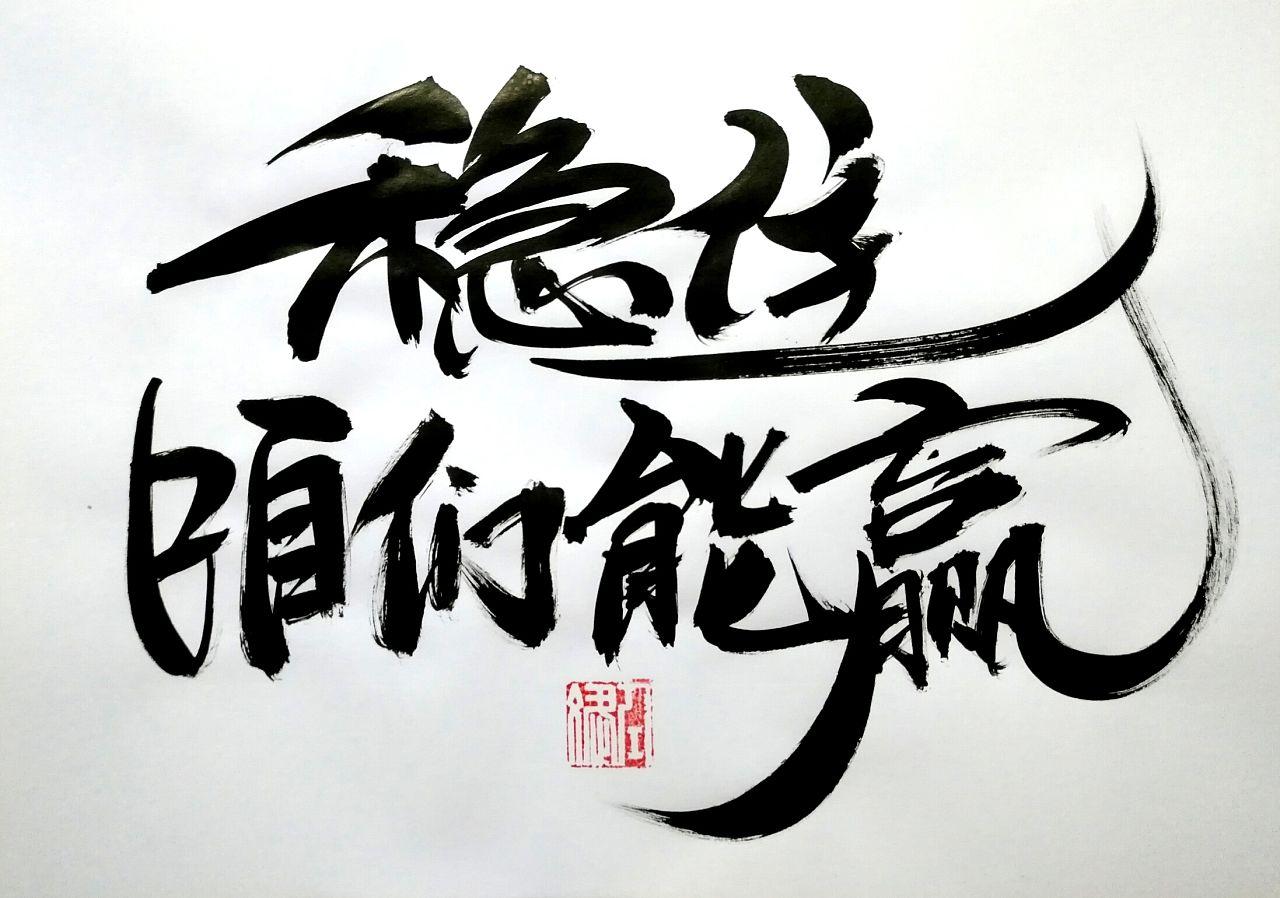 稳住
咱们能赢